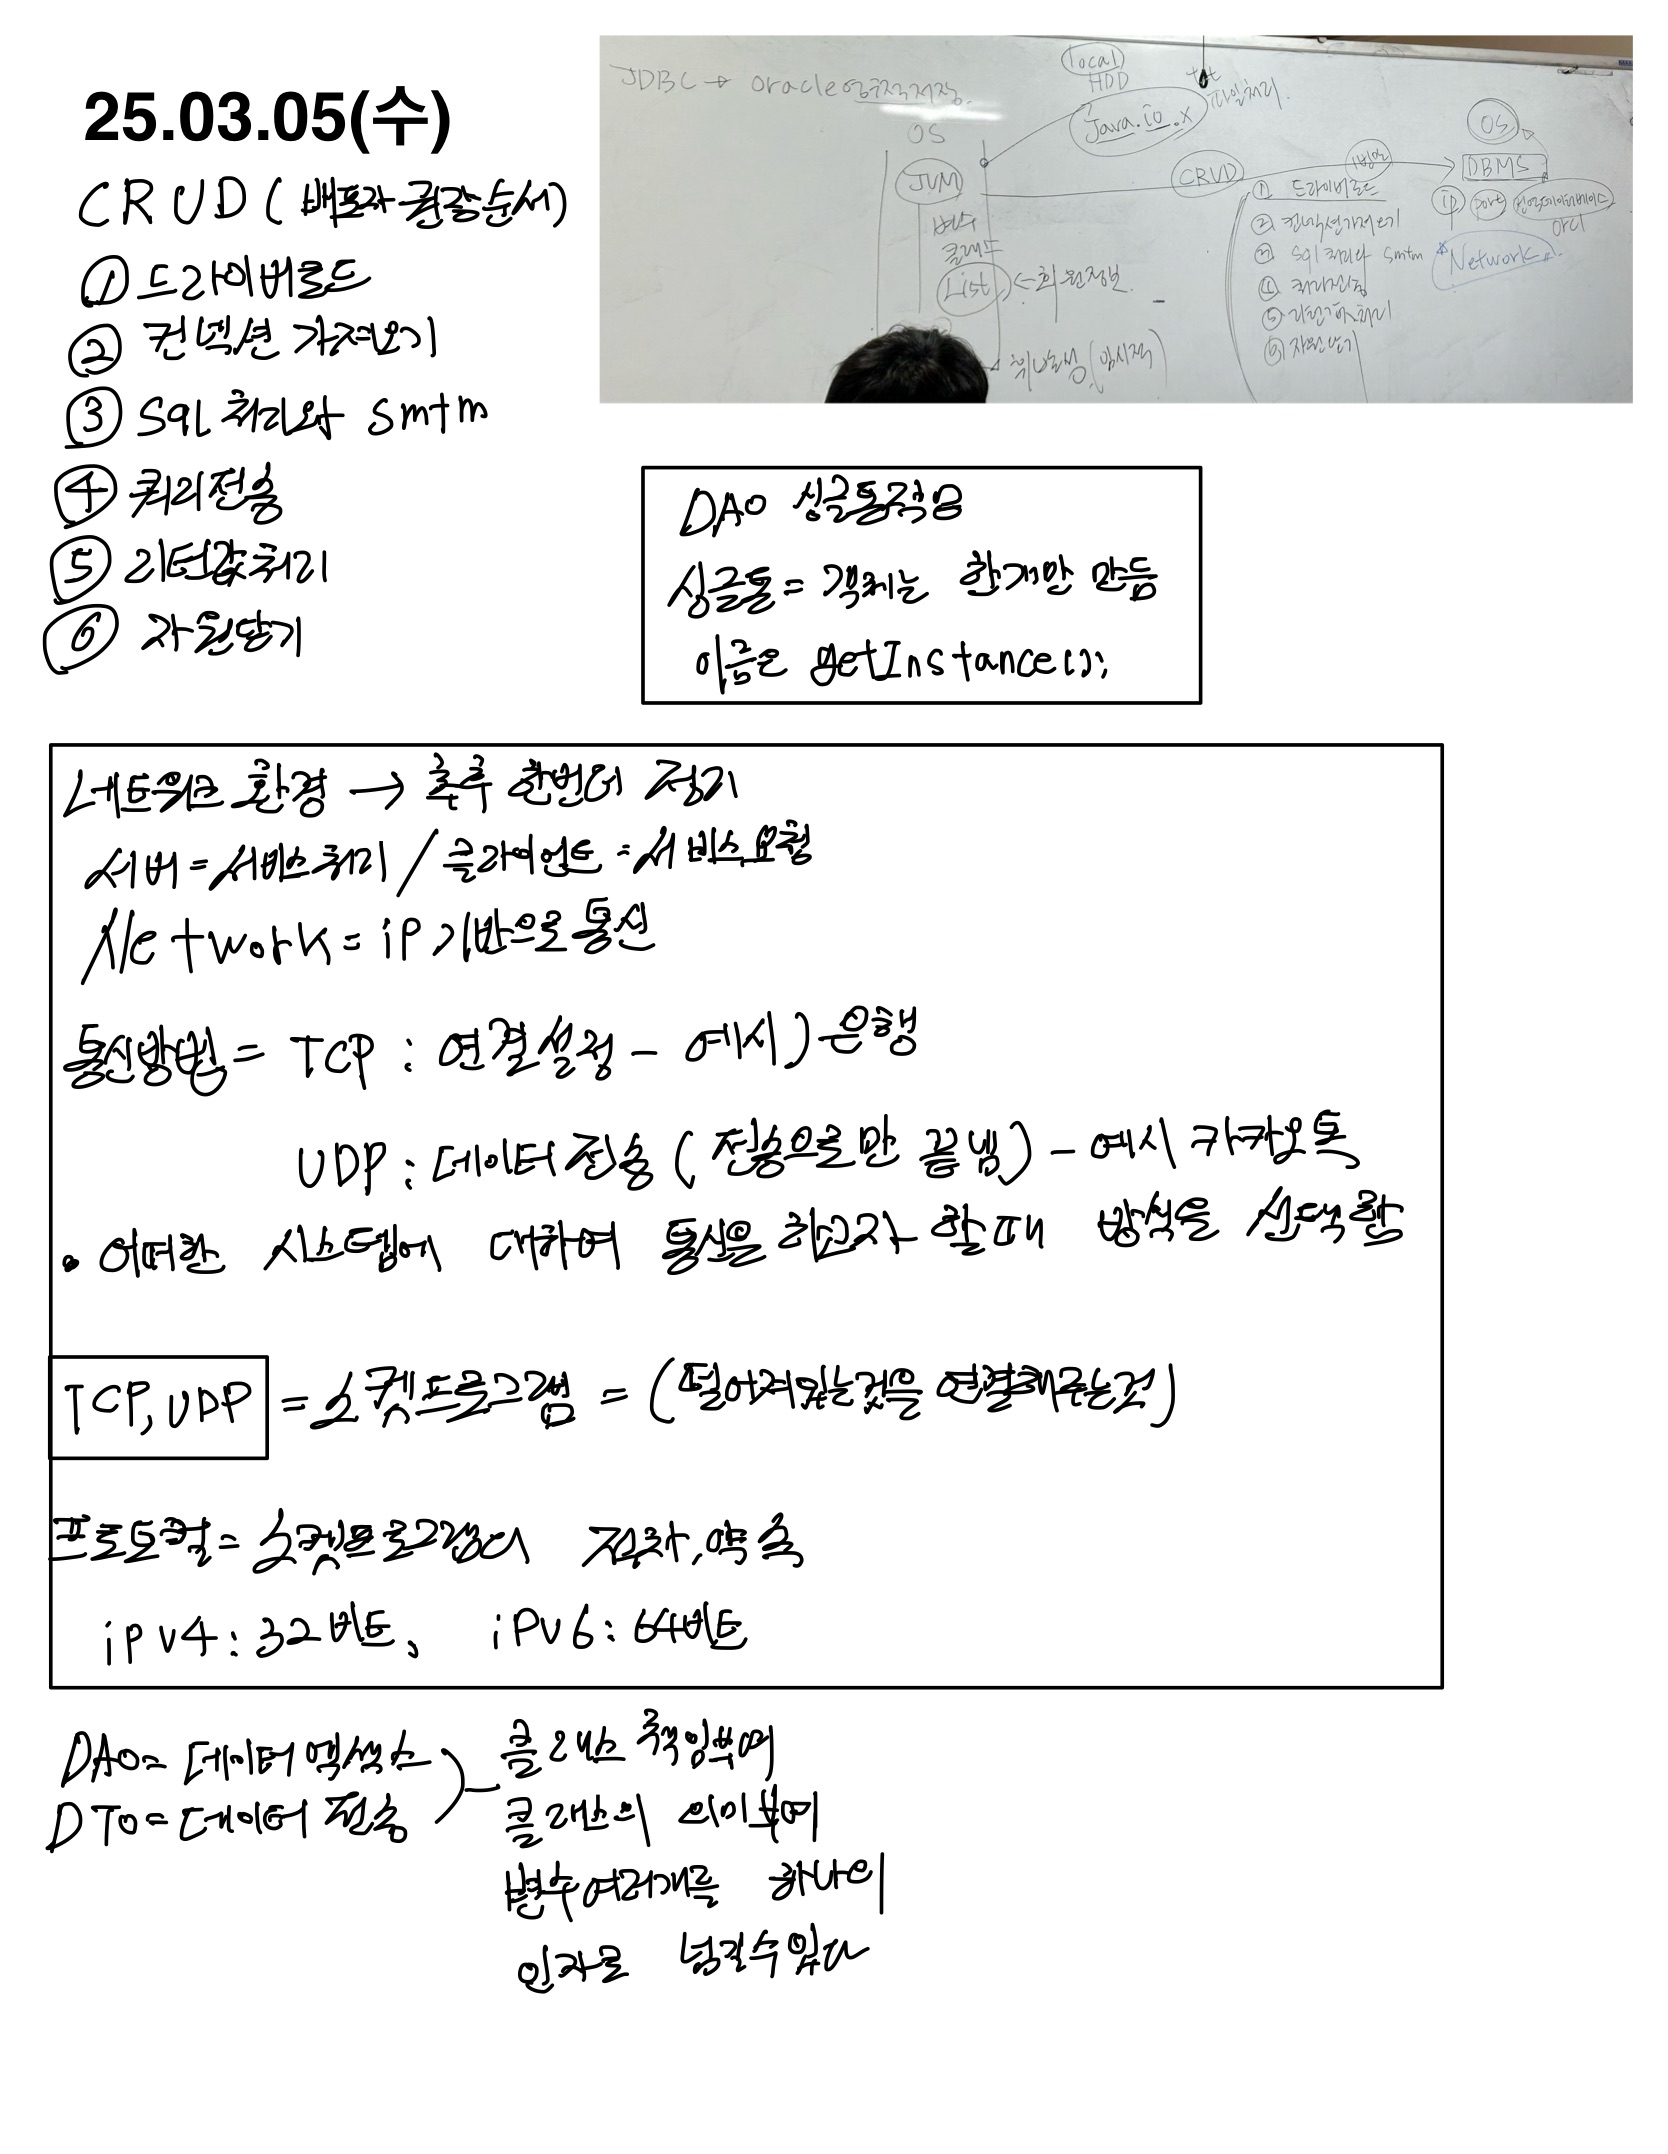 25.03.05(수)
CRUD (배포자 권장순서)
① 드라이버로드
② 컨넥션 가져오기
③ Sql 처리와 smtm
④ 쿼리전송
⑤ 리턴값처리
⑥ 자원닫기
JDBC → oracle 영구적저장.
local
HDD
txt
파일처리.
Java.io.x
OS
JVM
변수
List ← 회원정보
휘발성 (임시적)
CRUD
① 드라이버로드
② 컨넥션가져오기
③ sql 처리와 smtm
④ 쿼리전송
⑤ 리턴값처리
⑥ 자원닫기
OS
DBMS
ip port
orcl
Network
DAO 싱글톤적용
싱글톤 = 객체는 한개만 만듬
이름은 getInstance();
네트워크 환경 → 추후 한번더 정리
서버 = 서비스처리 / 클라이언트 = 서비스요청
Network = iP 기반으로 통신
통신방법 = TCP : 연결설정 - 예시) 은행
UDP : 데이터 전송 (전송으로만 끝냄) - 예시 카카오톡
• 어떠한 시스템에 대하여 통신을 하고자 할때 방식을 선택함
TCP, UDP = 소켓프로그램 = (떨어져있는것을 연결해주는것)
프로토컬 = 소켓프로그램의 절차, 약속
iPv4 : 32비트, iPv6 : 64비트
DAO = 데이터 엑세스
DTO = 데이터 전송
클래스 책임부여
클래스의 의미부여
변수 여러개를 하나의
인자로 넘길수있다